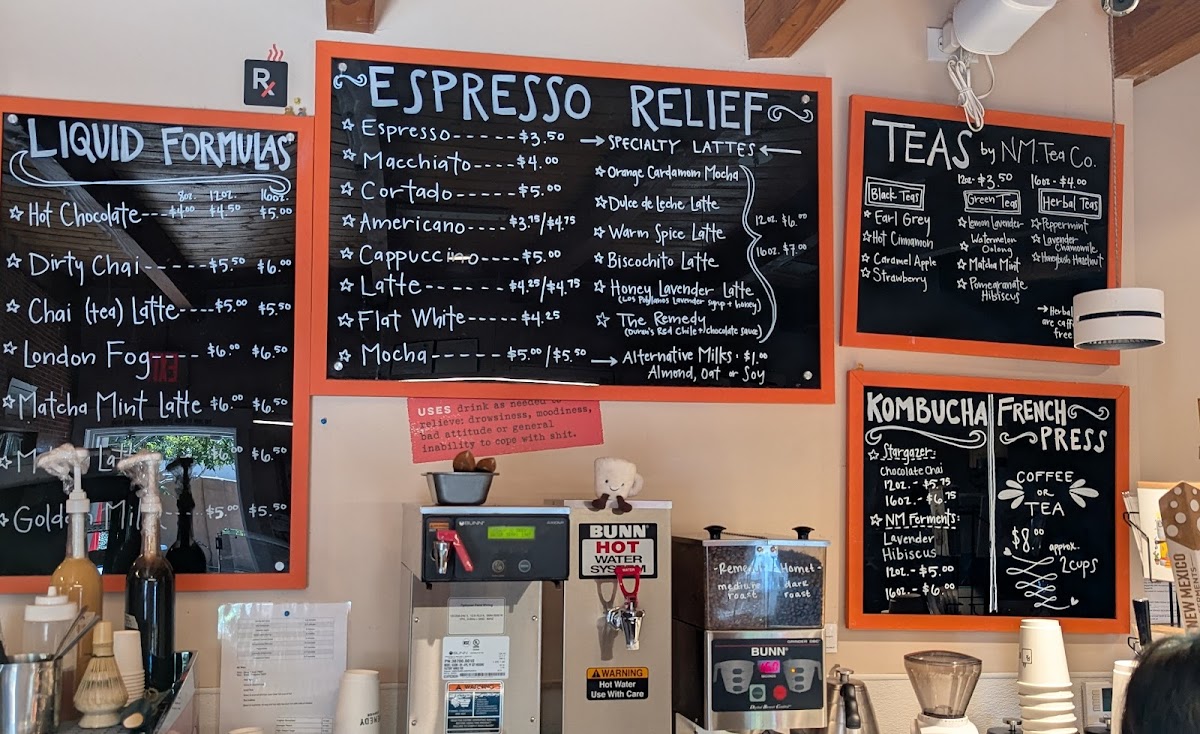 Rx
LIQUID FORMULAS
8oz. 12oz. 16oz.
☆ Hot Chocolate---$4.00 $4.50 $5.00
☆ Dirty Chai------$5.50 $6.00
☆ Chai (tea) Latte---$5.00 $5.50
☆ London Fog----$6.00 $6.50
☆ Matcha Mint Latte $6.00 $6.50
Latte $6.50
☆ Golden Milk $5.00 $5.50
ESPRESSO RELIEF
☆ Espresso-----$3.50
☆ Macchiato----$4.00
☆ Cortado-----$5.00
☆ Americano----$3.75/$4.75
☆ Cappuccino----$5.00
☆ Latte------$4.25/$4.75
☆ Flat White-----$4.25
☆ Mocha------$5.00/$5.50
→SPECIALTY LATTES←
☆ Orange Cardamom Mocha
☆ Dulce de Leche Latte
☆ Warm Spice Latte
☆ Biscochito Latte
☆ Honey Lavender Latte
(Los Poblanos Lavender syrup + honey)
☆ The Remedy
(Duran's Red Chile + chocolate sauce)
12oz. $6.00
16oz. $7.00
→ Alternative Milks: $1.00
Almond, Oat or Soy
TEAS by N.M. Tea Co.
12oz. $3.50 16oz. - $4.00
Black Teas
☆ Earl Grey
☆ Hot Cinnamon
☆ Caramel Apple
☆ Strawberry
Green Teas
☆ lemon lavender
☆ Watermelon
Oolong
☆ Matcha Mint
☆ Pomegranate
Hibiscus
Herbal Teas
☆ Peppermint
☆ Lavender
Chamomile
☆ Honeybush Hazelnut
→ Herbal
are caff
free
KOMBUCHA
☆ Stargazer:
Chocolate Chai
12oz. - $5.75
16oz. - $6.75
☆ NM Ferments:
Lavender
Hibiscus
12oz. - $5.00
16oz. - $6.00
FRENCH
PRESS
COFFEE
OR
TEA
$8.00 approx.
2cups
USES drink as needed to
relieve: drowsiness, moodiness,
bad attitude or general
inability to cope with shit.
BUNN
BUNN
HOT
WATER
SYSTEM
WATER
WARNING
Hot Water
Use With Care
WARNING
Remedy
medium
roast
Hornet
dark
roast
BUNN
NEW MEXICO